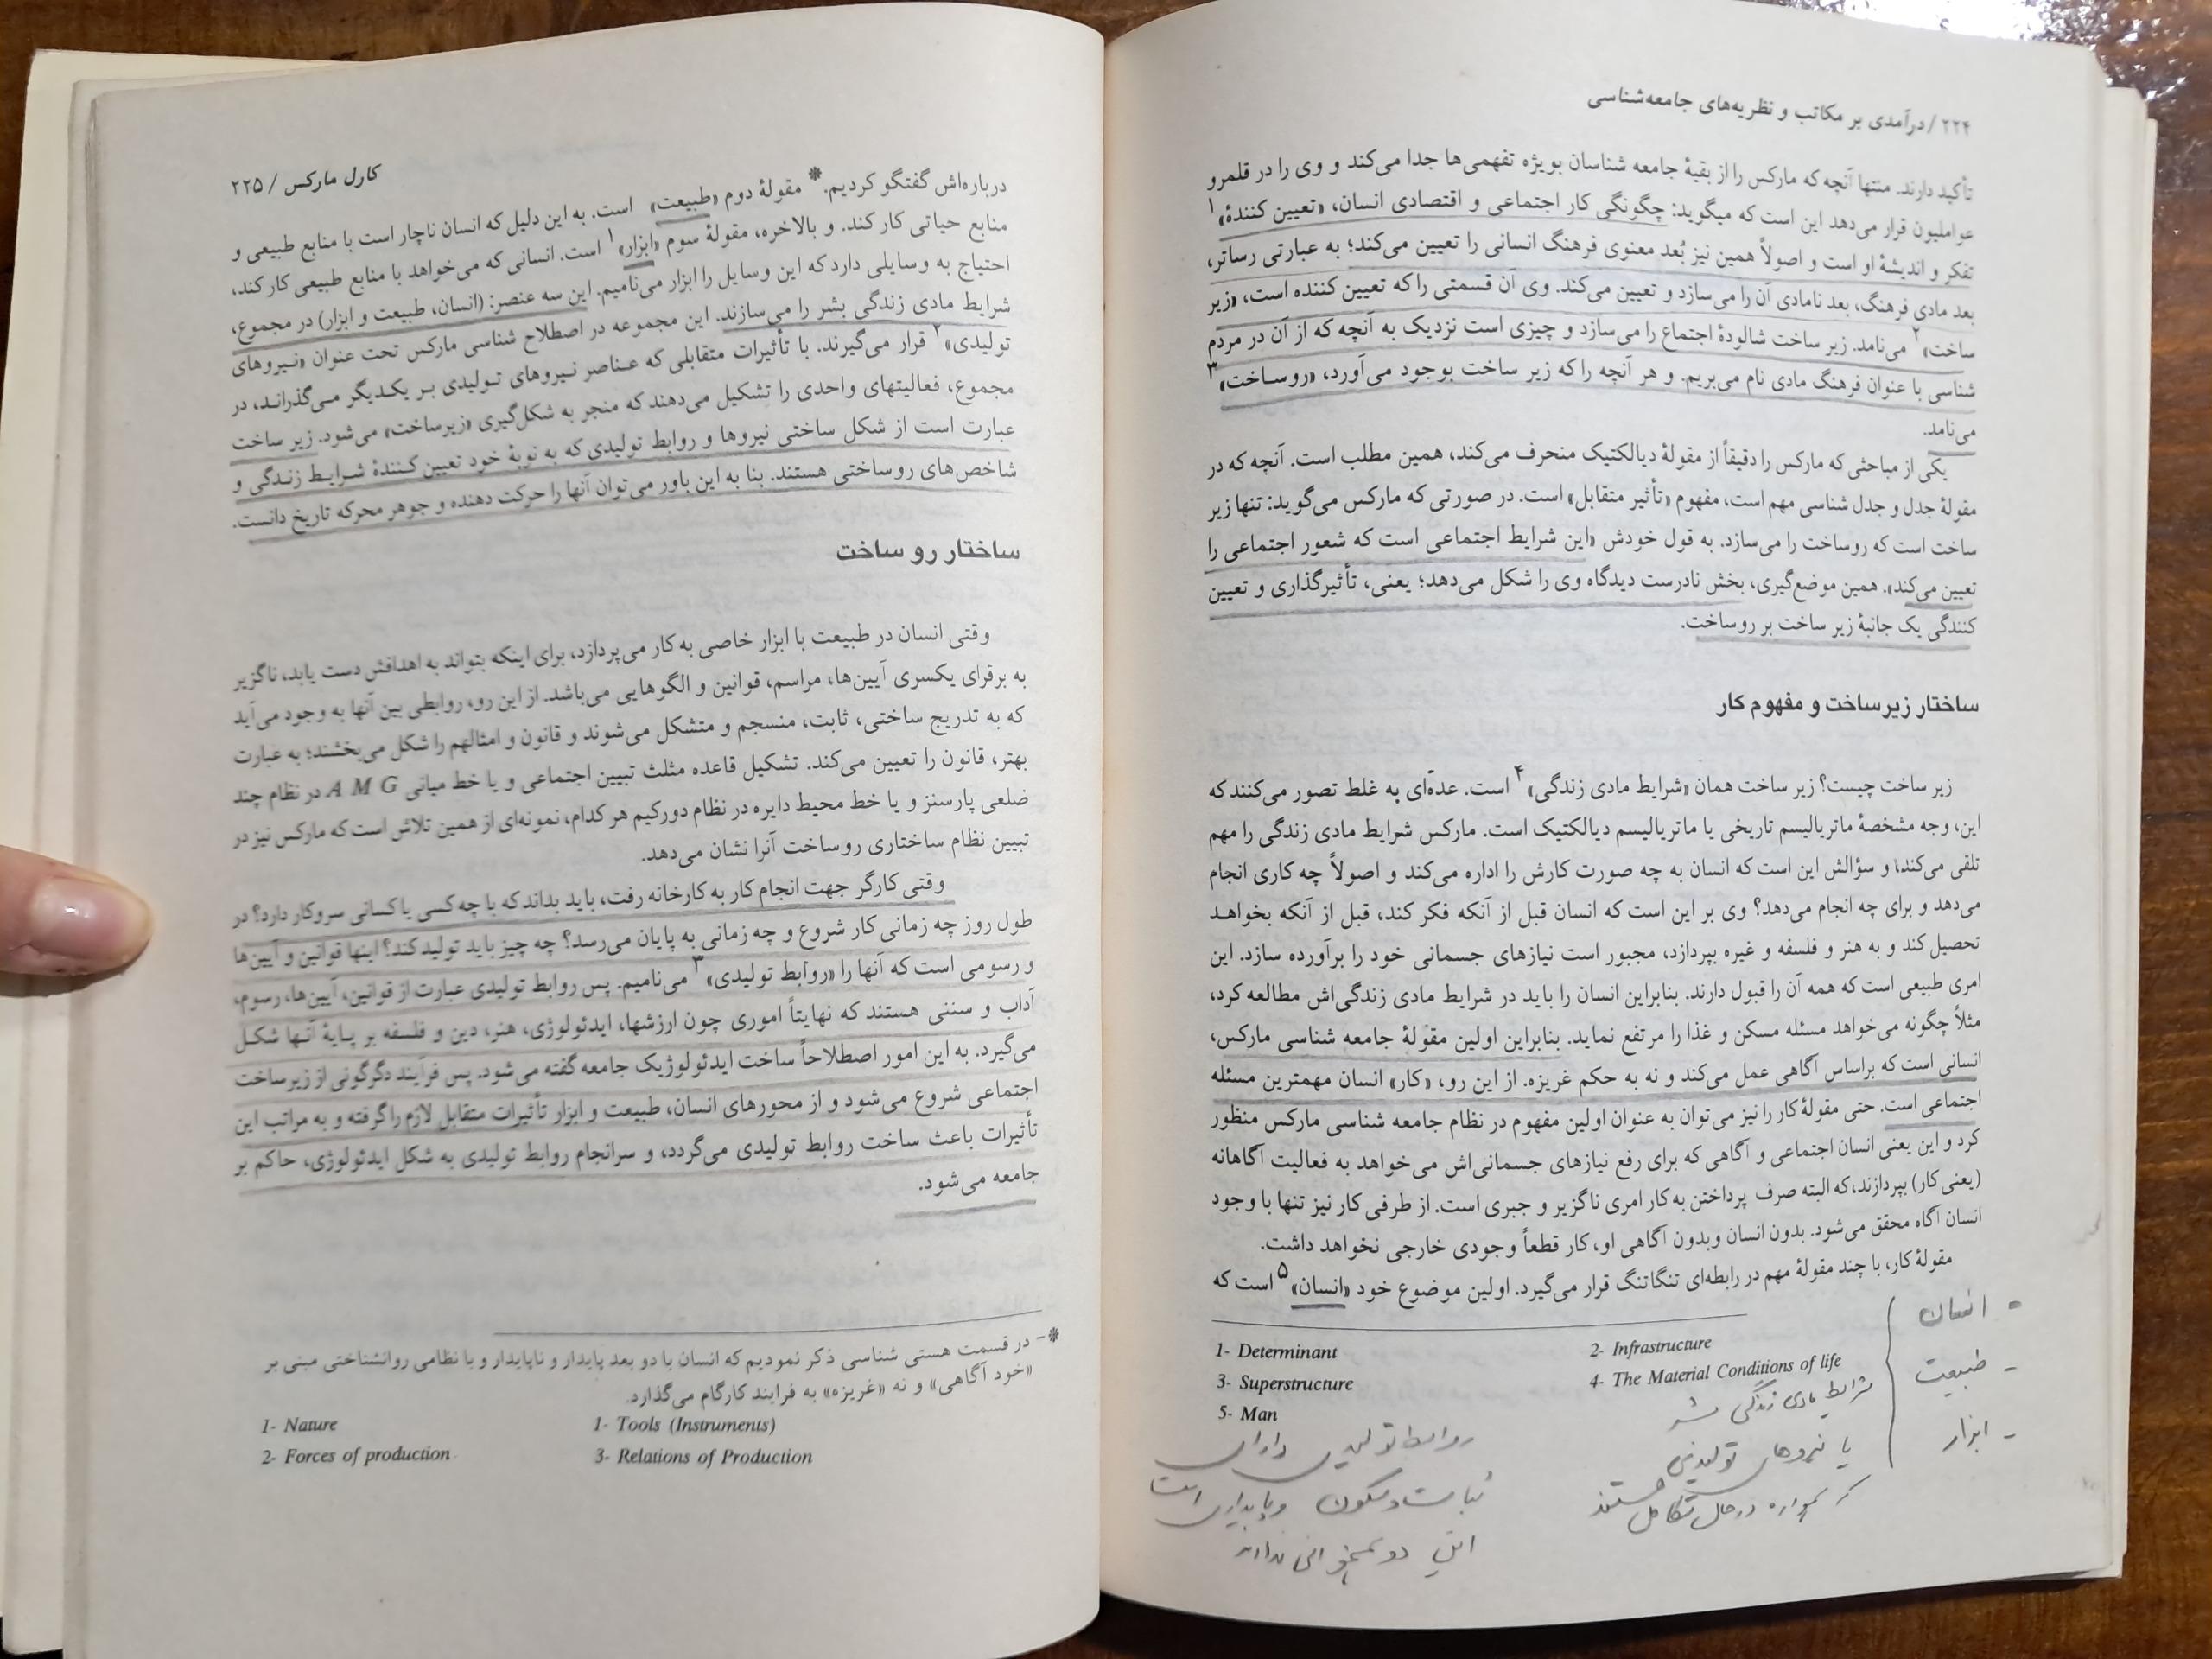 ۲۲۴ / درآمدی بر مکاتب و نظریه‌های جامعه‌شناسی
تأکید دارند. منتها آنچه که مارکس را از بقیهٔ جامعه شناسان بویژه تفهمی‌ها جدا می‌کند و وی را در قلمرو
عواملیون قرار می‌دهد این است که میگوید: چگونگی کار اجتماعی و اقتصادی انسان، «تعیین کنندهٔ»۱
تفکر و اندیشهٔ او است و اصولاً همین نیز بُعد معنوی فرهنگ انسانی را تعیین می‌کند؛ به عبارتی رساتر،
بعد مادی فرهنگ، بعد نامادی آن را می‌سازد و تعیین می‌کند. وی آن قسمتی را که تعیین کننده است، «زیر
ساخت»۲ می‌نامد. زیر ساخت شالودهٔ اجتماع را می‌سازد و چیزی است نزدیک به آنچه که از آن در مردم
شناسی با عنوان فرهنگ مادی نام می‌بریم. و هر آنچه را که زیر ساخت بوجود می‌آورد، «روساخت»۳
می‌نامد.
یکی از مباحثی که مارکس را دقیقاً از مقولهٔ دیالکتیک منحرف می‌کند، همین مطلب است. آنچه که در
مقولهٔ جدل و جدل شناسی مهم است، مفهوم «تأثیر متقابل» است. در صورتی که مارکس می‌گوید: تنها زیر
ساخت است که روساخت را می‌سازد. به قول خودش «این شرایط اجتماعی است که شعور اجتماعی را
تعیین می‌کند». همین موضع‌گیری، بخش نادرست دیدگاه وی را شکل می‌دهد؛ یعنی، تأثیرگذاری و تعیین
کنندگی یک جانبهٔ زیر ساخت بر روساخت.
ساختار زیرساخت و مفهوم کار
زیر ساخت چیست؟ زیر ساخت همان «شرایط مادی زندگی»۴ است. عدّه‌ای به غلط تصور می‌کنند که
این، وجه مشخصهٔ ماتریالیسم تاریخی یا ماتریالیسم دیالکتیک است. مارکس شرایط مادی زندگی را مهم
تلقی می‌کند؛ و سؤالش این است که انسان به چه صورت کارش را اداره می‌کند و اصولاً چه کاری انجام
می‌دهد و برای چه انجام می‌دهد؟ وی بر این است که انسان قبل از آنکه فکر کند، قبل از آنکه بخواهد
تحصیل کند و به هنر و فلسفه و غیره بپردازد، مجبور است نیازهای جسمانی خود را برآورده سازد. این
امری طبیعی است که همه آن را قبول دارند. بنابراین انسان را باید در شرایط مادی زندگی‌اش مطالعه کرد،
مثلاً چگونه می‌خواهد مسئله مسکن و غذا را مرتفع نماید. بنابراین اولین مقولهٔ جامعه شناسی مارکس،
انسانی است که براساس آگاهی عمل می‌کند و نه به حکم غریزه. از این رو، «کار» انسان مهمترین مسئله
اجتماعی است. حتی مقولهٔ کار را نیز می‌توان به عنوان اولین مفهوم در نظام جامعه شناسی مارکس منظور
کرد و این یعنی انسان اجتماعی و آگاهی که برای رفع نیازهای جسمانی‌اش می‌خواهد به فعالیت آگاهانه
(یعنی کار) بپردازند، که البته صرف پرداختن به کار امری ناگزیر و جبری است. از طرفی کار نیز تنها با وجود
انسان آگاه محقق می‌شود. بدون انسان وبدون آگاهی او، کار قطعاً وجودی خارجی نخواهد داشت.
مقولهٔ کار، با چند مقولهٔ مهم در رابطه‌ای تنگاتنگ قرار می‌گیرد. اولین موضوع خود «انسان»۵ است که
1- Determinant
2- Infrastructure
3- Superstructure
4- The Material Conditions of life
5- Man
- انسان
- طبیعت
- ابزار
شرایط مادی زندگی بشر
یا نیروهای تولیدی
که همواره در حال تکامل هستند
روابط تولیدی دارای
ثبات و سکون و پایداری است
این دو همخوانی ندارند
کارل مارکس / ۲۲۵
درباره‌اش گفتگو کردیم.* مقولهٔ دوم «طبیعت» است. به این دلیل که انسان ناچار است با منابع طبیعی و
منابع حیاتی کار کند. و بالاخره، مقولهٔ سوم «ابزار»۱ است. انسانی که می‌خواهد با منابع طبیعی کار کند،
احتیاج به وسایلی دارد که این وسایل را ابزار می‌نامیم. این سه عنصر: (انسان، طبیعت و ابزار) در مجموع،
شرایط مادی زندگی بشر را می‌سازند. این مجموعه در اصطلاح شناسی مارکس تحت عنوان «نیروهای
تولیدی»۲ قرار می‌گیرند. با تأثیرات متقابلی که عناصر نیروهای تولیدی بر یکدیگر می‌گذراند، در
مجموع، فعالیتهای واحدی را تشکیل می‌دهند که منجر به شکل‌گیری «زیرساخت» می‌شود. زیر ساخت
عبارت است از شکل ساختی نیروها و روابط تولیدی که به نوبهٔ خود تعیین کنندهٔ شرایط زندگی و
شاخص‌های روساختی هستند. بنا به این باور می‌توان آنها را حرکت دهنده و جوهر محرکه تاریخ دانست.
ساختار رو ساخت
وقتی انسان در طبیعت با ابزار خاصی به کار می‌پردازد، برای اینکه بتواند به اهدافش دست یابد، ناگزیر
به برقرای یکسری آیین‌ها، مراسم، قوانین و الگوهایی می‌باشد. از این رو، روابطی بین آنها به وجود می‌آید
که به تدریج ساختی، ثابت، منسجم و متشکل می‌شوند و قانون و امثالهم را شکل می‌بخشند؛ به عبارت
بهتر، قانون را تعیین می‌کند. تشکیل قاعده مثلث تبیین اجتماعی و یا خط میانی A M G در نظام چند
ضلعی پارسنز و یا خط محیط دایره در نظام دورکیم هر کدام، نمونه‌ای از همین تلاش است که مارکس نیز در
تبیین نظام ساختاری روساخت آنرا نشان می‌دهد.
وقتی کارگر جهت انجام کار به کارخانه رفت، باید بداند که با چه کسی یا کسانی سروکار دارد؟ در
طول روز چه زمانی کار شروع و چه زمانی به پایان می‌رسد؟ چه چیز باید تولید کند؟ اینها قوانین و آیین‌ها
و رسومی است که آنها را «روابط تولیدی»۳ می‌نامیم. پس روابط تولیدی عبارت از قوانین، آیین‌ها، رسوم،
آداب و سننی هستند که نهایتاً اموری چون ارزشها، ایدئولوژی، هنر، دین و فلسفه بر پایهٔ آنها شکل
می‌گیرد. به این امور اصطلاحاً ساخت ایدئولوژیک جامعه گفته می‌شود. پس فرآیند دگرگونی از زیرساخت
اجتماعی شروع می‌شود و از محورهای انسان، طبیعت و ابزار تأثیرات متقابل لازم را گرفته و به مراتب این
تأثیرات باعث ساخت روابط تولیدی می‌گردد، و سرانجام روابط تولیدی به شکل ایدئولوژی، حاکم بر
جامعه می‌شود.
*- در قسمت هستی شناسی ذکر نمودیم که انسان با دو بعد پایدار و ناپایدار و با نظامی روانشناختی مبنی بر
«خود آگاهی» و نه «غریزه» به فرایند کارگام می‌گذارد.
1- Nature
1- Tools (Instruments)
2- Forces of production
3- Relations of Production